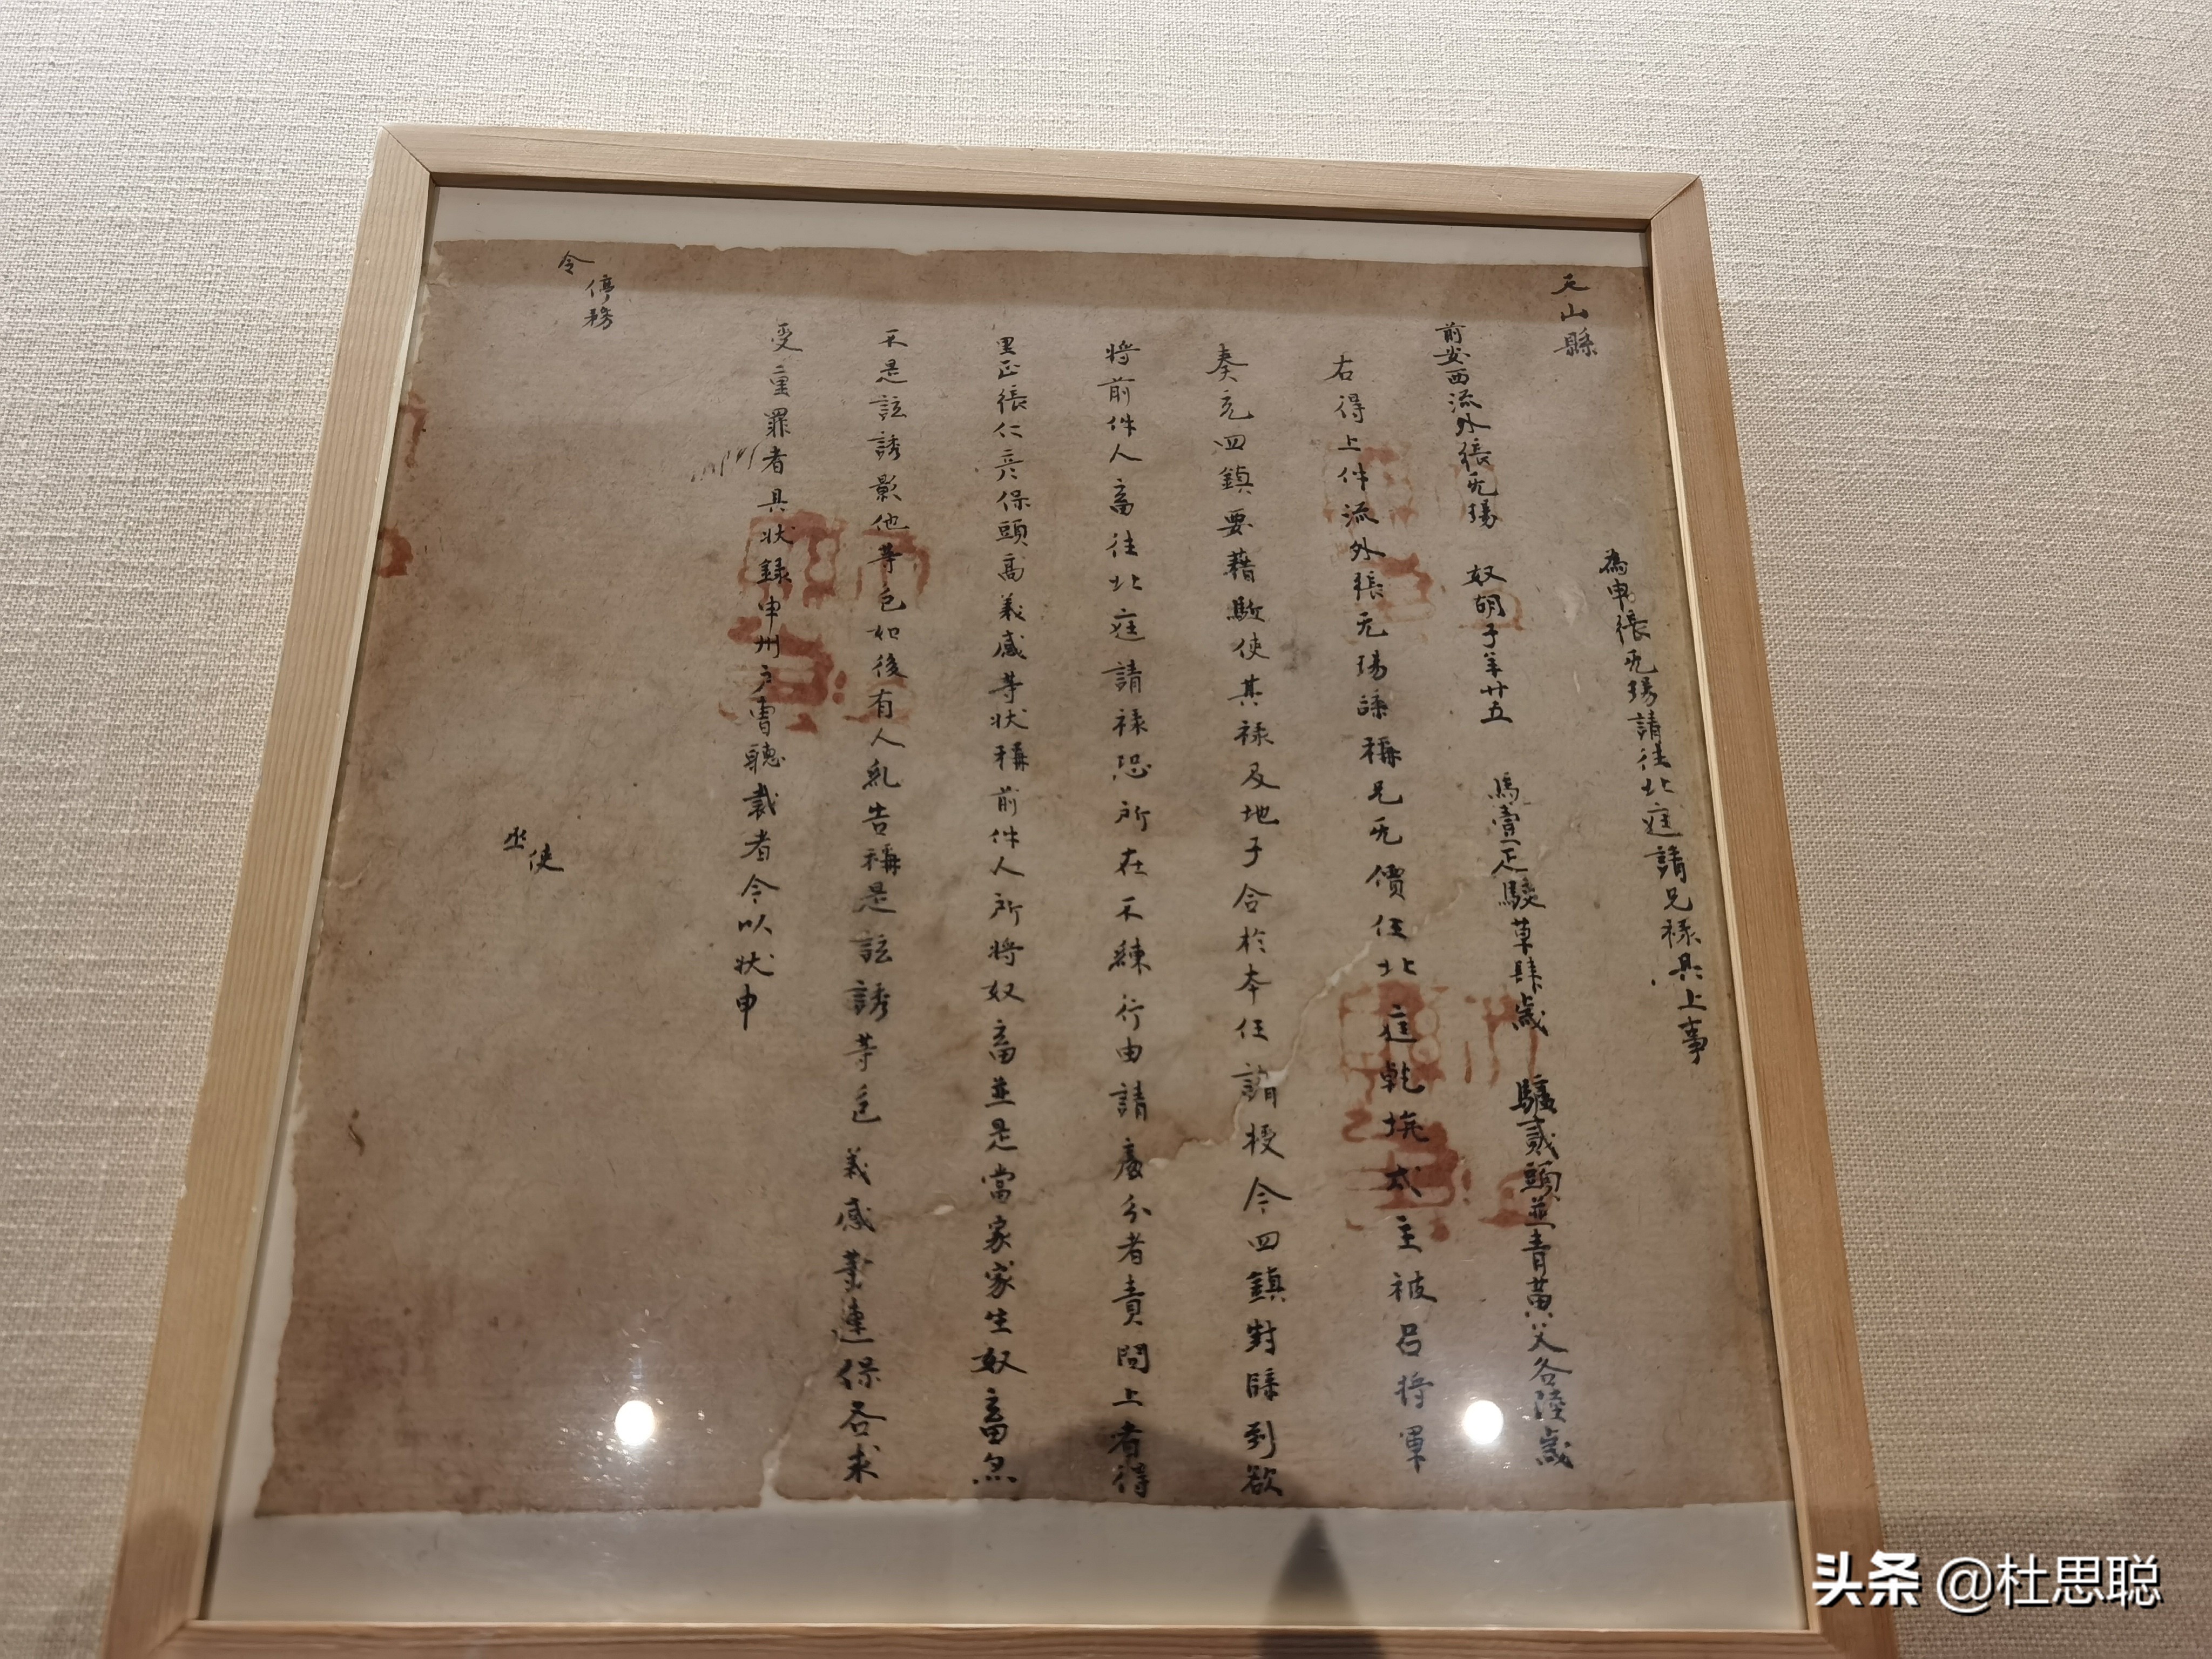 天山縣
為申張无瑒請往北庭請兄祿具上事
前安西流外張无瑒 奴胡子年廿五 馬壹疋駮草肆歲 驢貳頭並青黃父各陸歲
右得上件流外張无瑒牒稱兄无價任北庭乾坑戍主被呂將軍
奏充四鎮要藉驅使其祿及地子合於本任請授今四鎮封牒到欲
將前件人畜往北庭請祿恐所在不練行由請處分者責問上者得
里正張仁彥保頭高義感等狀稱前件人所將奴畜並是當家家生奴畜亦
不是詃誘影他等色如後有人糺告稱是詃誘等色義感等連保各求
受重罪者具狀錄申州戶曹聽裁者今以狀申
令停務
丞使
头条 @杜思聪